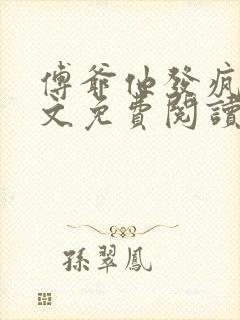 傅爺他發瘋
文免費閱讀
孫翠鳳